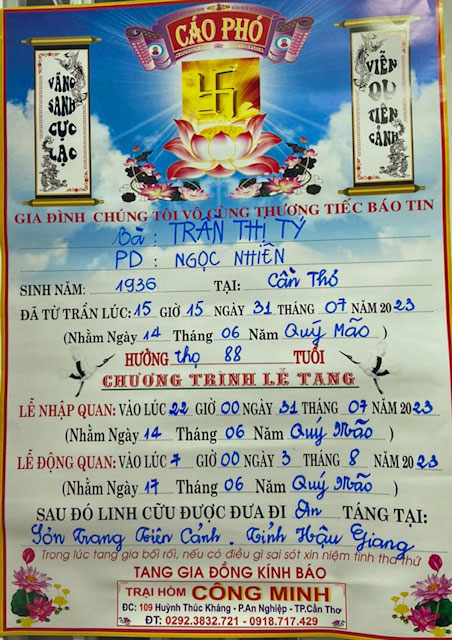 CÁO PHÓ
VÃNG SANH CỰC LẠC
VIỄN QUI TIÊN CẢNH
GIA ĐÌNH CHÚNG TÔI VÔ CÙNG THƯƠNG TIẾC BÁO TIN
Bà : TRẦN THỊ TÝ
PD : NGỌC NHIÊN
SINH NĂM: 1936 TẠI: Cần Thơ
ĐÃ TỪ TRẦN LÚC: 15 GIỜ 15 NGÀY 31 THÁNG 07 NĂM 2023
(Nhằm Ngày 14 Tháng 06 Năm Quý Mão )
HƯỞNG thọ 88 TUỔI
CHƯƠNG TRÌNH LỄ TANG
LỄ NHẬP QUAN: VÀO LÚC 22 GIỜ 00 NGÀY 31 THÁNG 07 NĂM 2023
(Nhằm Ngày 14 Tháng 06 Năm Quý Mão )
LỄ ĐỘNG QUAN: VÀO LÚC 7 GIỜ 00 NGÀY 3 THÁNG 8 NĂM 2023
(Nhằm Ngày 17 Tháng 06 Năm Quý Mão )
SAU ĐÓ LINH CỮU ĐƯỢC ĐƯA ĐI An TÁNG TẠI:
Sơn Trang Tiên Cảnh . Tỉnh Hậu Giang
Trong lúc tang gia bối rối, nếu có điều gì sai sót xin niệm tình tha thứ
TANG GIA ĐỒNG KÍNH BÁO
TRẠI HÒM CÔNG MINH
ĐC: 109 Huỳnh Thúc Kháng - P.An Nghiệp - TP.Cần Thơ
ĐT: 0292.3832.721 - 0918.717.429